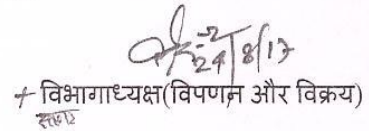 24/8/17
+ विभागाध्यक्ष(विपणन और विक्रय)